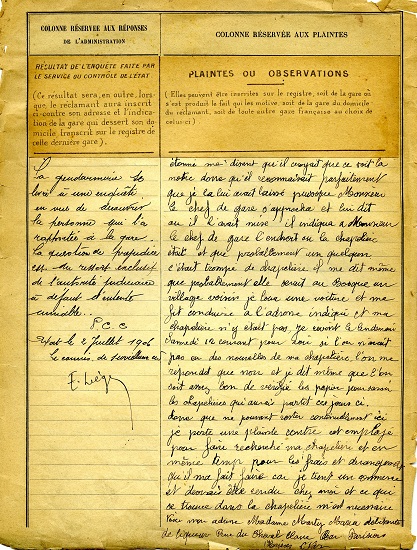 COLONNE RÉSERVÉE AUX RÉPONSES
DE L'ADMINISTRATION
RÉSULTAT DE L'ENQUÊTE FAITE PAR
LE SERVICE DU CONTRÔLE DE L'ÉTAT
(Ce résultat sera, en outre, lors-
que, le réclamant aura inscrit
ci-contre son adresse et l'indica-
tion de la gare qui dessert son do-
micile, transcrit sur le registre de
cette dernière gare).
La gendarmerie se
livre à une enquête
en vue de découvrir
la personne qui l'a
rapportée à la gare.
La question de préjudice
est du ressort exclusif
de l'autorité judiciaire
à défaut d'entente
amiable.
P.C.C
2 Juillet 1906
E. Liége
COLONNE RÉSERVÉE AUX PLAINTES
PLAINTES OU OBSERVATIONS
(Elles peuvent être inscrites sur le registre, soit de la gare où
s'est produit le fait qui les motive, soit de la gare du domicile
du réclamant, soit de toute autre gare française au choix de
celui-ci)
étonné me disant qu'il croyait que ce soit la
notre donc qu'il reconnaissait parfaitement
que je la lui avait laissé presque Monsieur
le chef de gare s'approcha et lui dit
ou il l'avait mise il indiqua a Monsieur
le chef de gare l'endroit ou la chapelière
était et que probablement un quelqun
c'était trompé de chapelière il me dit même
que probablement elle serait au Bosque un
village voisin je loua une voiture et me
fit conduire à l'adresse indiqué et ma
chapelière n'y était pas. je revint le lendemain
Samedi 12 courant pour voir si l'on n'avait
pas eu des nouvelles de ma chapelière l'on me
repondit que non et je dit même que l'on
soit assez bon de verifié les papier
les chapelières qui aurai partit ces jours ci.
donc que ne pouvant rester continuellement ici
je porte une plainte contre cet employé
pour faire recherché ma chapelière et en
même temp pour les frais et dérangement
qu'il ma fait faire car je tient un commerce
et devrais être rendu chez moi et ce que
se trouve dans la chapelière m'est necessaire
Voici mon adresse Madame Martin Maria débitante
de liqueur Rue du Cheval Blanc